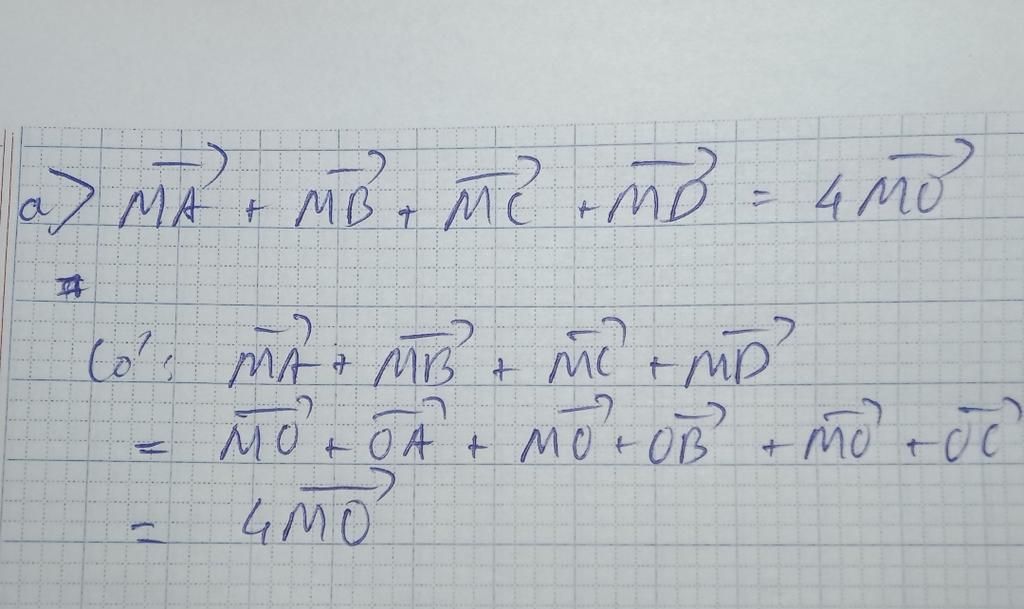 a) MA→ + MB→ + MC→ + MD→ = 4MO→
Có: MA→ + MB→ + MC→ + MD→
= MO→ + OA→ + MO→ + OB→ + MO→ + OC→
= 4MO→